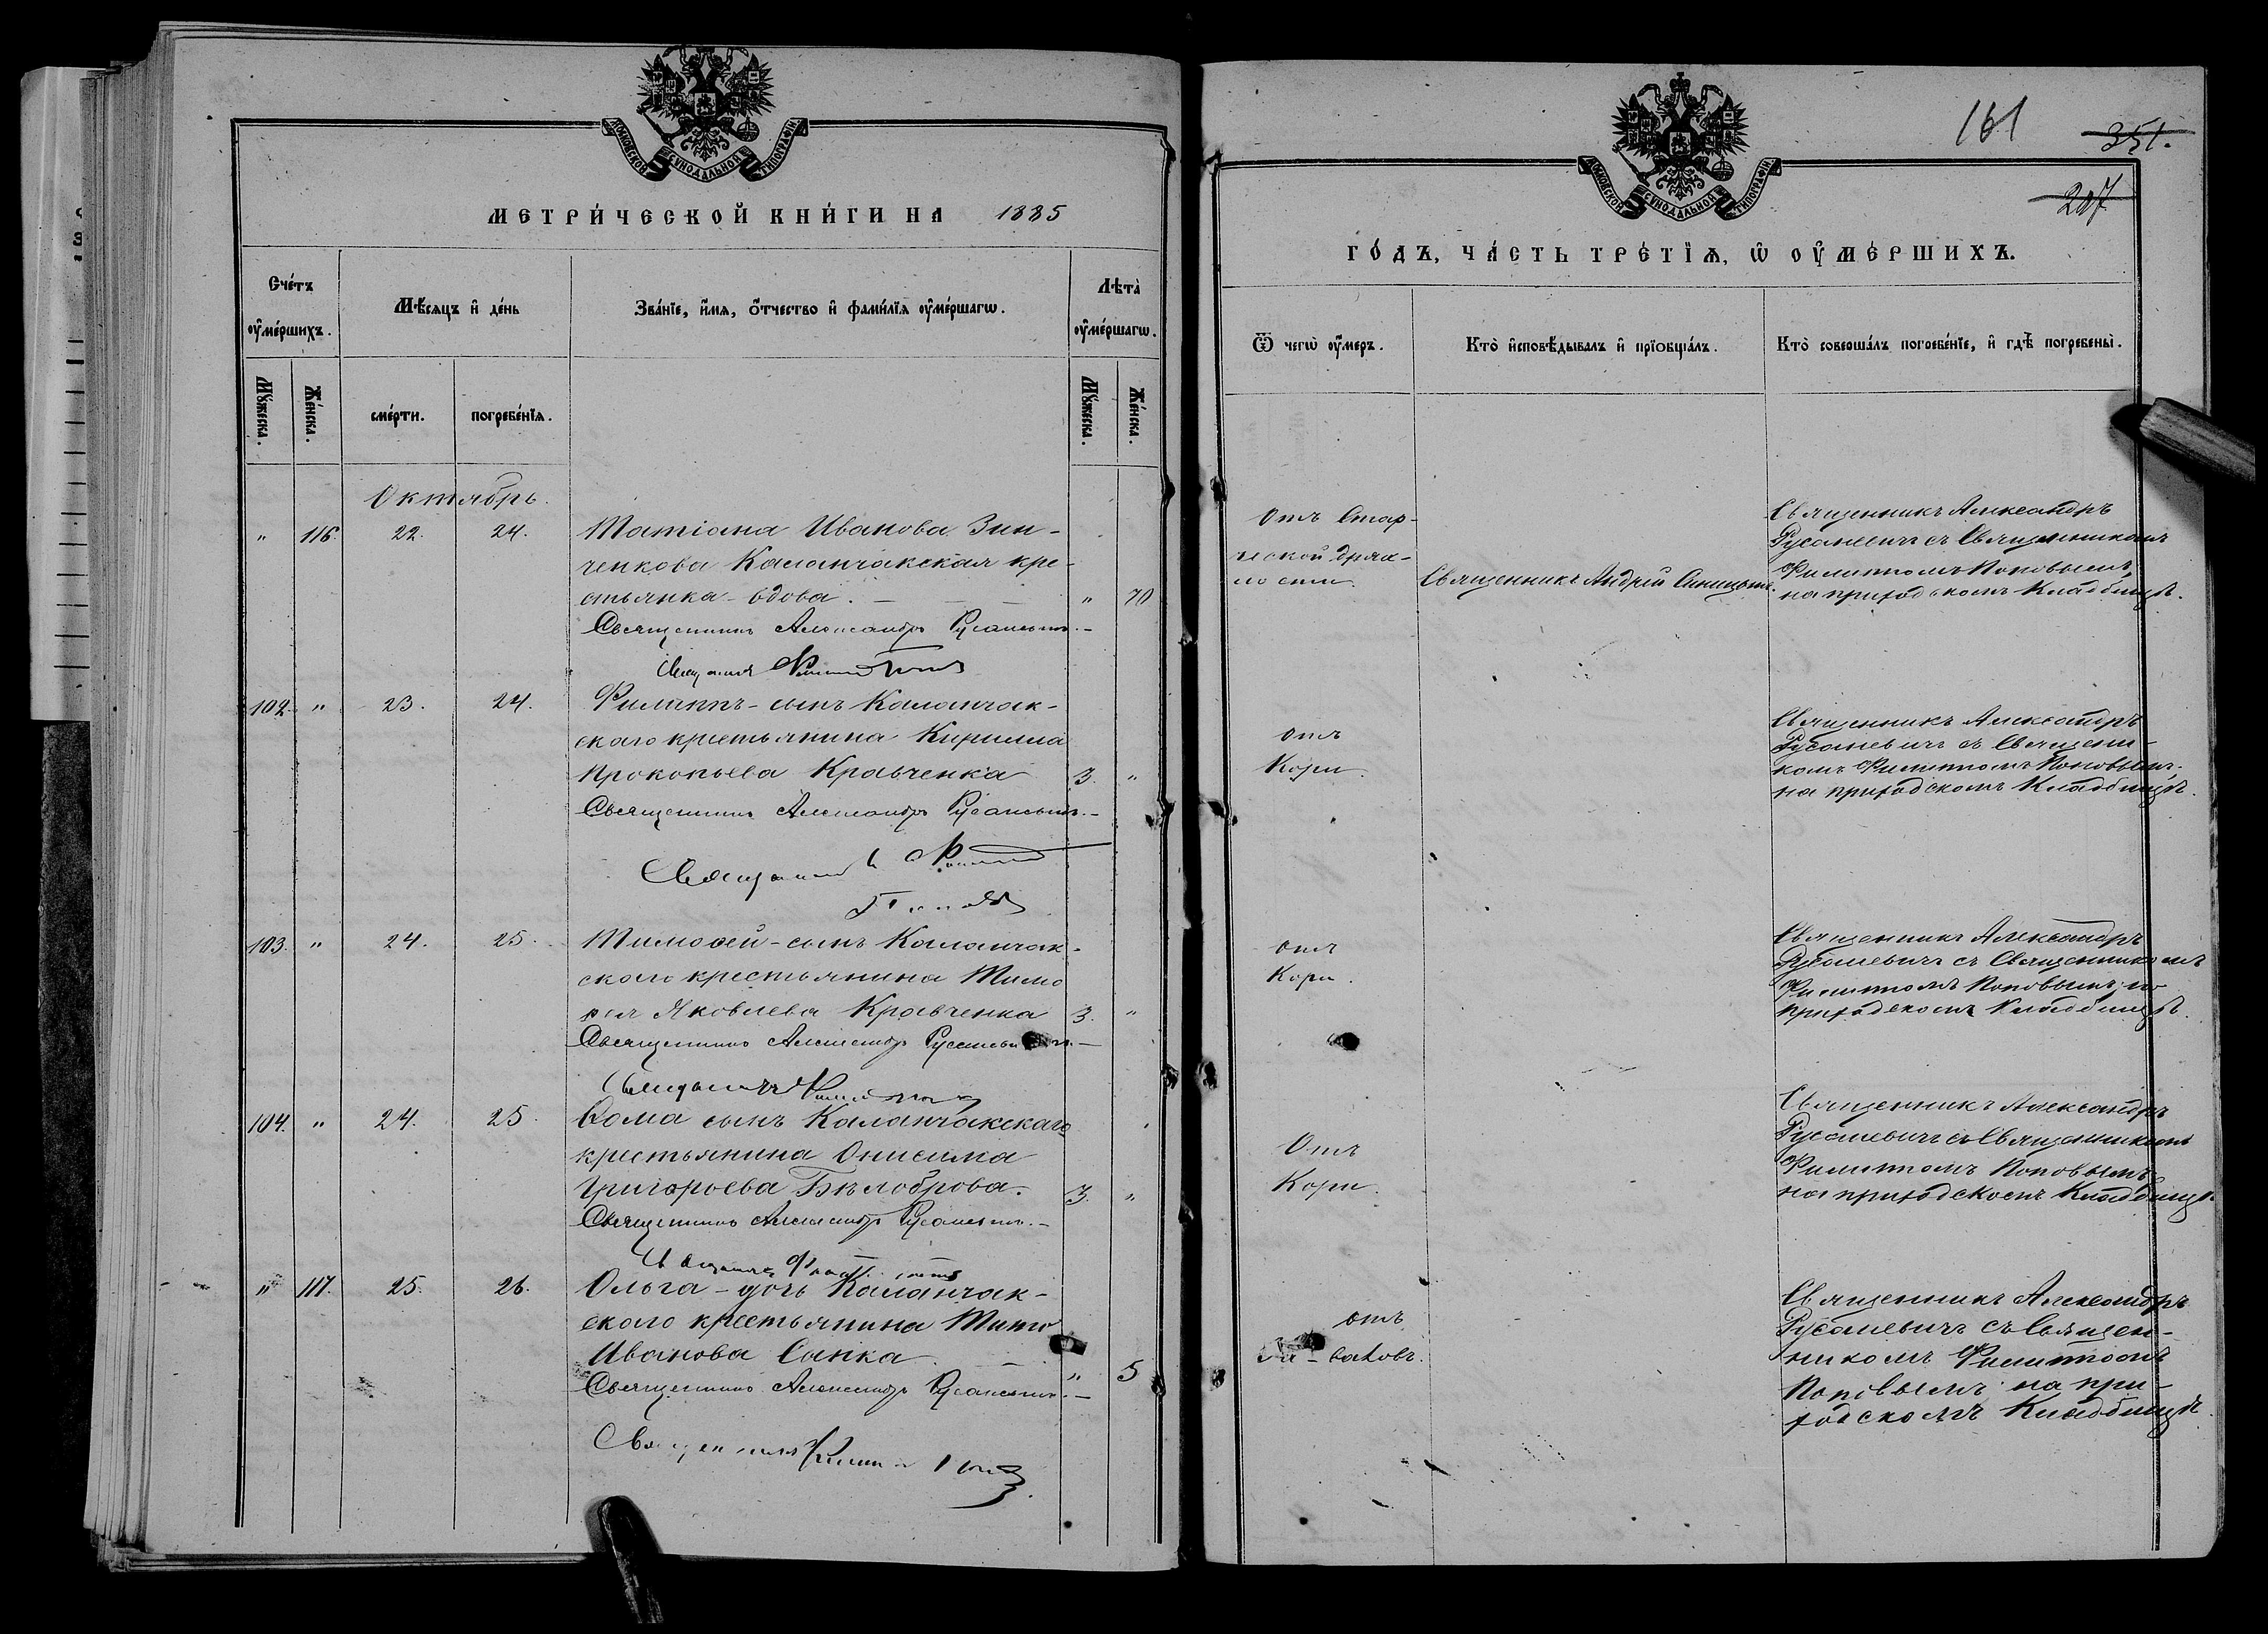 МОСКОВСКОЙ СѴНОДАЛЬНОЙ ТИПОГРАФІИ
МЕТРИ́ЧЕСКОЙ КНИ́ГИ НА 1885
Сче́тъ оу҆ме́ршихъ.
Мѣ́сяцъ и҆ де́нь
Зва́нїе, и҆́мѧ, ѻ҆́тчество и҆ фами́лїѧ оу҆ме́ршагѡ.
Лѣта̀ оу҆ме́ршагѡ.
Мꙋ́жеска.
Же́нска.
сме́рти.
погребе́нїѧ.
Мꙋ́жеска.
Же́нска.
Октябрь.
" 116. 22. 24. Татіана Иванова Зин-
ченкова Каланчакская кре-
стьянка - вдова. " 70
Священникъ Александръ Русаневичъ.
Священникъ Филиппъ Поповъ
102. " 23. 24. Филиппъ - сынъ Каланчак-
скаго крестьянина Кирилла
Прокопьева Кравченка 3. "
Священникъ Александръ Русаневичъ.
Священникъ Филиппъ
Поповъ
103. " 24. 25. Тимоѳей - сынъ Каланчак-
скаго крестьянина Тимо
ѳея Яковлева Кравченка 3. "
Священникъ Александръ Русаневичъ.
Священникъ Филиппъ Поповъ
104. " 24. 25. Ѳома сынъ Каланчакскаго
крестьянина Онисима
Григорьева Бѣлоброва. 3. "
Священникъ Александръ Русаневичъ.
Священникъ Филиппъ Поповъ
" 117. 25. 26. Ольга - дочь Каланчак-
скаго крестьянина Тита
Иванова Санка. " 5
Священникъ Александръ Русаневичъ.
Священникъ Филиппъ Поповъ
МОСКОВСКОЙ СѴНОДАЛЬНОЙ ТИПОГРАФІИ
161
351.
207
ГО́ДЪ, ЧА́СТЬ ТРЕ́ТЇѦ, Ѡ҆ ОУ҆МЕ́РШИХЪ.
Ѿ чегѡ̀ оу҆́меръ.
Кто̀ и҆сповѣ́дывалъ и҆ прїобща́лъ.
Кто̀ соверша́лъ погребе́нїе, и҆ гдѣ̀ погребены̀.
Отъ Стар-
ческой дрях-
лости.
Священникъ Андрей Синицынъ.
Священникъ Александръ
Русаневичъ съ Священникомъ
Филиппомъ Поповымъ,
на приходскомъ Кладбищѣ.
отъ
Кори.
Священникъ Александръ
Русаневичъ съ Священни-
комъ Филиппомъ Поповымъ,
на приходскомъ Кладбищѣ.
отъ
Кори.
Священникъ Александръ
Русаневичъ съ Священникомъ
Филиппомъ Поповымъ, на
приходскомъ Кладбищѣ.
Отъ
Кори.
Священникъ Александръ
Русаневичъ съ Священникомъ
Филиппомъ Поповымъ
на приходскомъ Кладбищѣ.
отъ
Священникъ Александръ
Русаневичъ съ Священ-
никомъ Филиппомъ
Поповымъ на при-
ходскомъ Кладбищѣ.